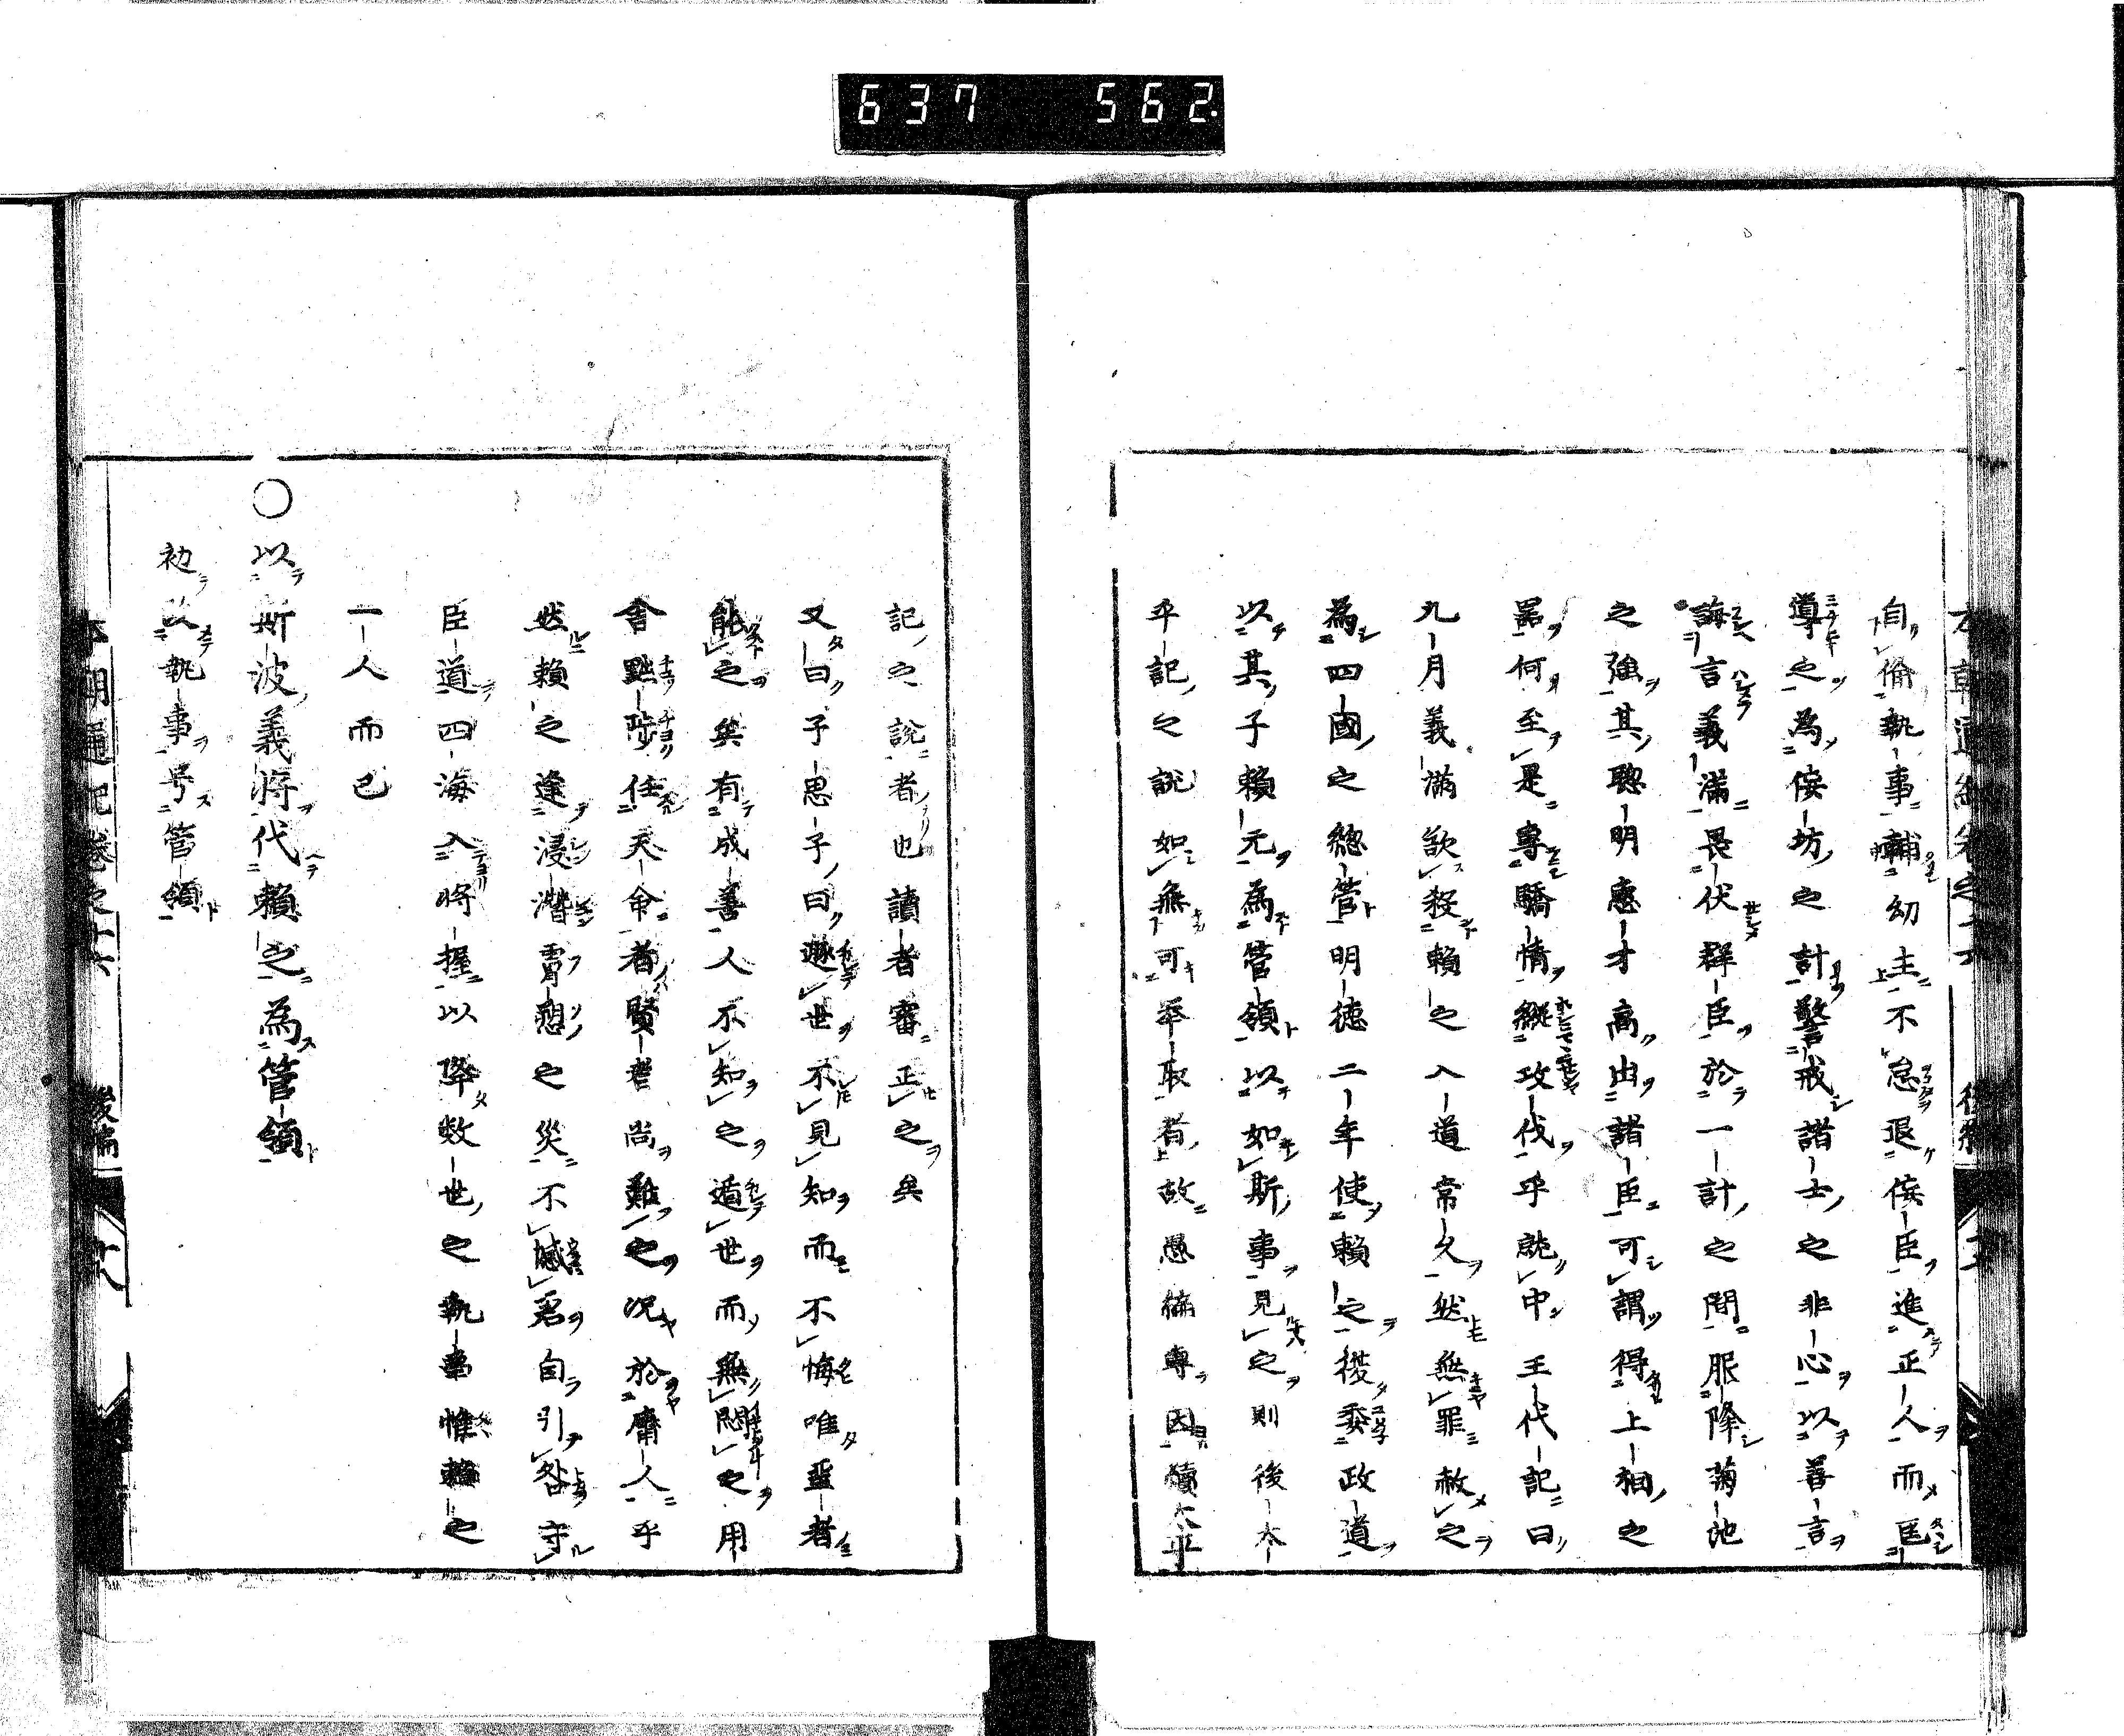 637 562.
自倫執事輔幼主不怠退侫臣進正人而匡
導之為侫坊之計警戒諸士之非心以善言
誨言義滿畏伏群臣於一計之間服降菊池
之強其聰明惠才高由諸臣可謂得上相之
器何至是專驕情縱攻伐乎就中王代記曰
九月義滿欲殺賴之入道常久然無罪赦之
為四國之總管明德二年使賴之後委政道
以其子賴元為管領以如斯事見之則後太
平記之說如無可采取者故愚編專因續太平
記之說者也讀者審正之矣
又曰子思子曰遯世不見知而不悔唯聖者
能之矣有成善人不知之遁世而無悶之用
舍黜陟任天命者賢者尚難之况於庸人乎
然賴之逢浸潛膚愬之災不慽君自引咎守
臣道四海入將握以降數世之執事惟賴之
一人而已
〇以斯波義將代賴之為管領
初改執事号管領
本朝通紀卷之十六 後編 十八